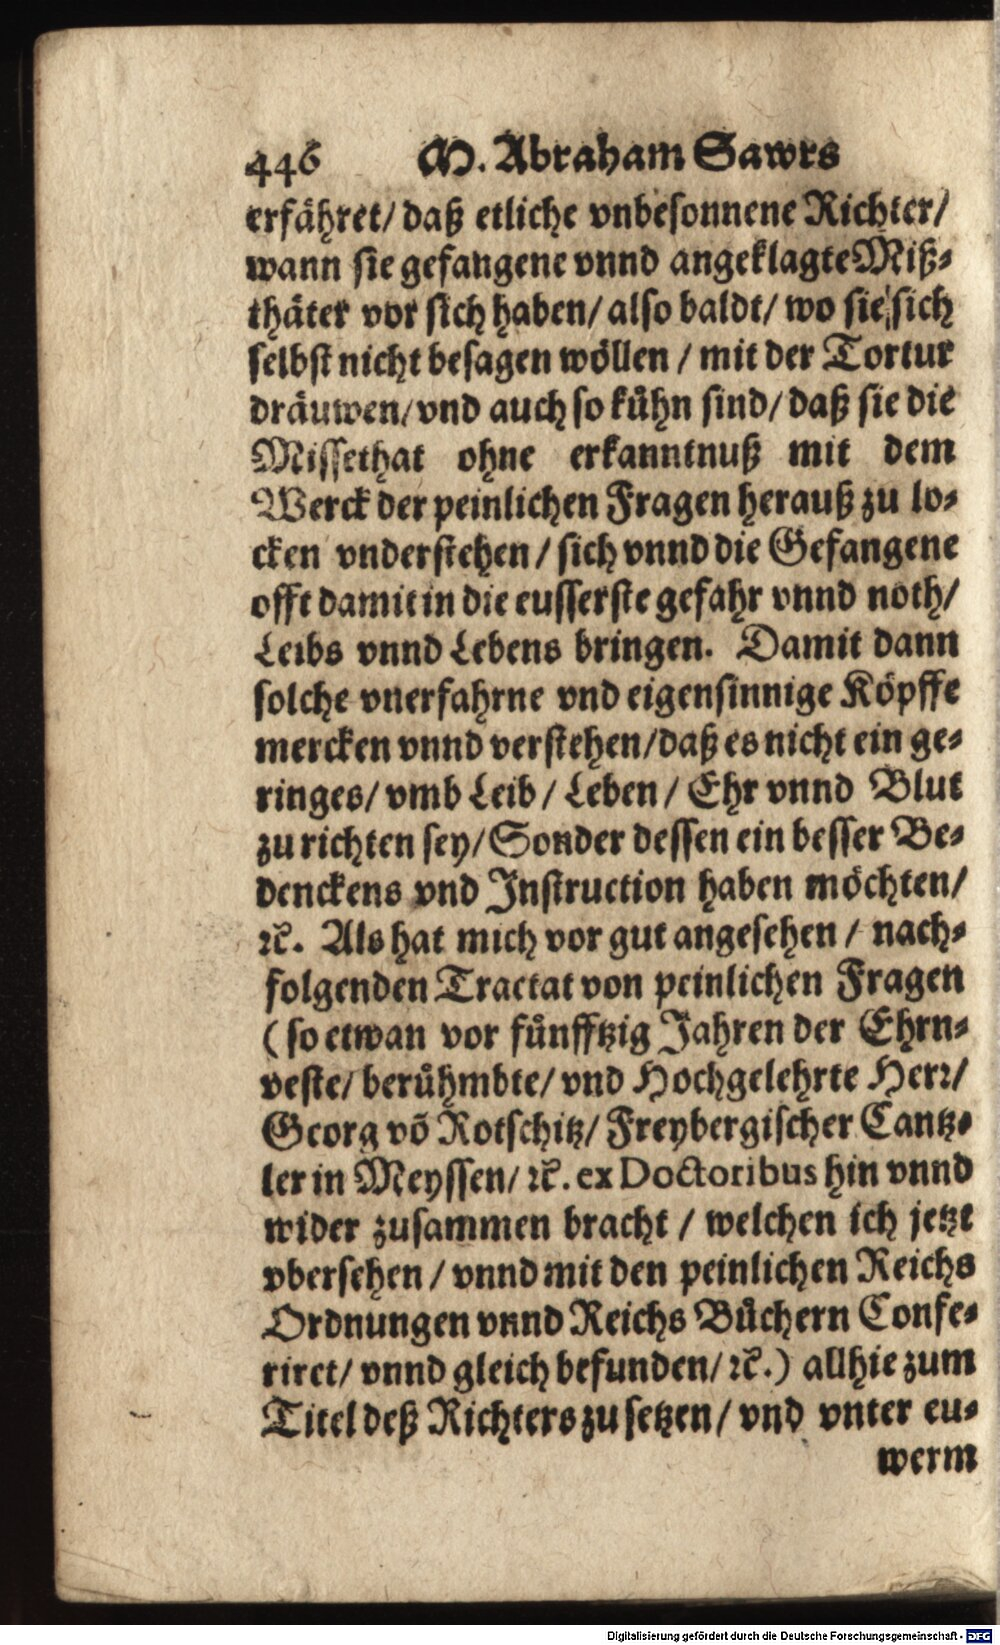 446 M. Abraham Sawrs
erfähret/ daß etliche vnbesonnene Richter/
wann sie gefangene vnnd angeklagte Miß-
thäter vor sich haben/ also baldt/ wo sie sich
selbst nicht besagen wöllen / mit der Tortur
dräuwen/ vnd auch so kühn sind/ daß sie die
Missethat ohne erkanntnuß mit dem
Werck der peinlichen Fragen herauß zu lo-
cken vnderstehen / sich vnnd die Gefangene
offt damit in die eusserste gefahr vnnd noth/
Leibs vnnd Lebens bringen. Damit dann
solche vnerfahrne vnd eigensinnige Köpffe
mercken vnnd verstehen/ daß es nicht ein ge-
ringes/ vmb Leib / Leben / Ehr vnnd Blut
zu richten sey/ Sonder dessen ein besser Be-
denckens vnd Instruction haben möchten/
ꝛc. Als hat mich vor gut angesehen / nach-
folgenden Tractat von peinlichen Fragen
( so etwan vor fünfftzig Jahren der Ehrn-
veste/ berühmbte/ vnd Hochgelehrte Herr/
Georg võ Rotschitz/ Freybergischer Cantz-
ler in Meyssen/ ꝛc. ex Doctoribus hin vnnd
wider zusammen bracht / welchen ich jetzt
vbersehen / vnnd mit den peinlichen Reichs
Ordnungen vnnd Reichs Büchern Confe-
riret/ vnnd gleich befunden/ ꝛc.) allhie zum
Titel deß Richters zu setzen/ vnd vnter eu-
werm
Digitalisierung gefördert durch die Deutsche Forschungsgemeinschaft - DFG